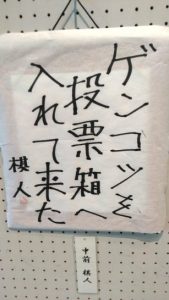 ゲンコツを
投票箱へ
入れて来た
棋人
中前 棋人